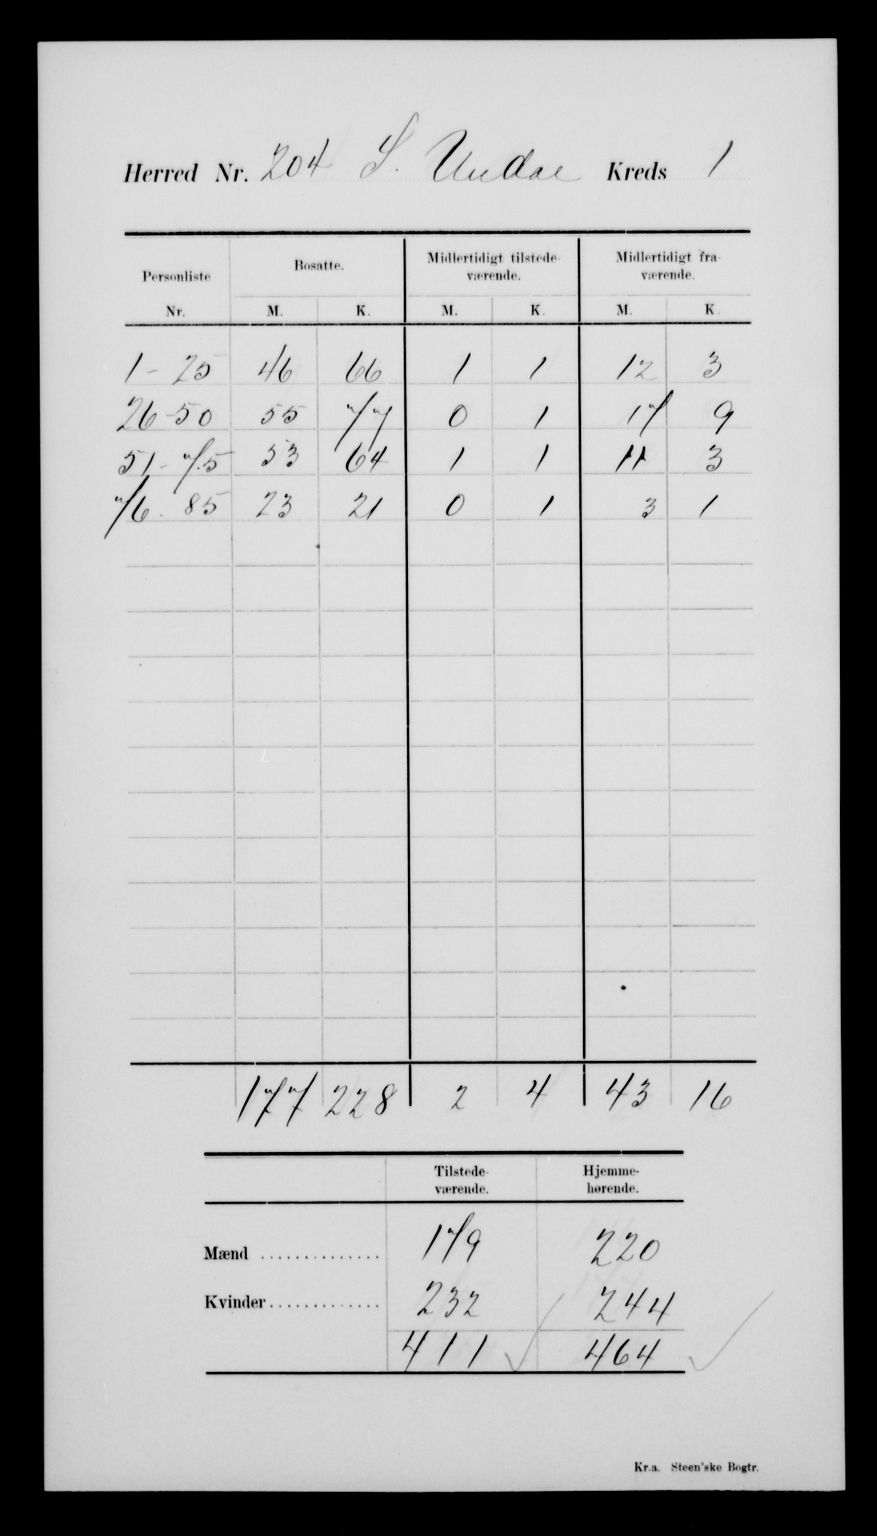 Herred Nr. 204 S. Undal Kreds 1
Personliste Bosatte. Midlertidigt tilstede- Midlertidigt fra-
værende. værende.
Nr. M. K. M. K. M. K.
1 - 25 46 66 1 1 12 3
26-50 55 77 0 1 17 9
51-75 53 64 1 1 11 3
76-85 23 21 0 1 3 1
177 228 2 4 43 16
Tilstede- Hjemme-
værende. hørende.
Mænd .............. 179 220
Kvinder ............. 232 244
411 464
Kr.a. Steen'ske Bogtr.